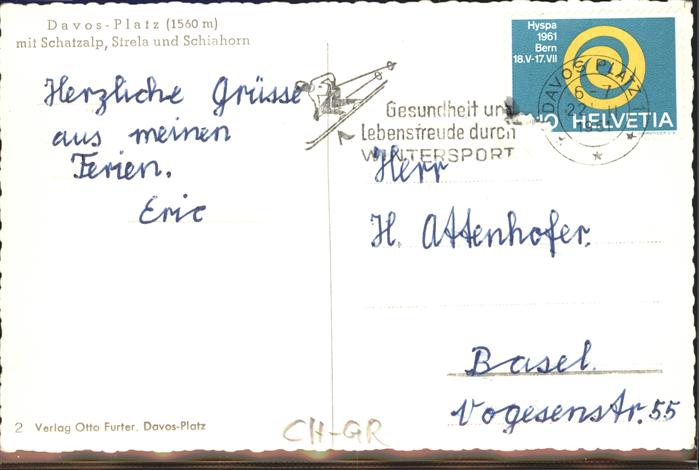 Davos-Platz (1560 m)
mit Schatzalp, Strela und Schiahorn
Herzliche Grüsse
aus meinen
Ferien.
Eric
Hyspa
1961
Bern
18.V-17.VII
HELVETIA
DAVOS PLATZ
6-7
Gesundheit und
Lebensfreude durch
WINTERSPORT
Herr
H. Attenhofer.
Basel.
Vogesenstr. 55
2 Verlag Otto Furter, Davos-Platz
CH-GR